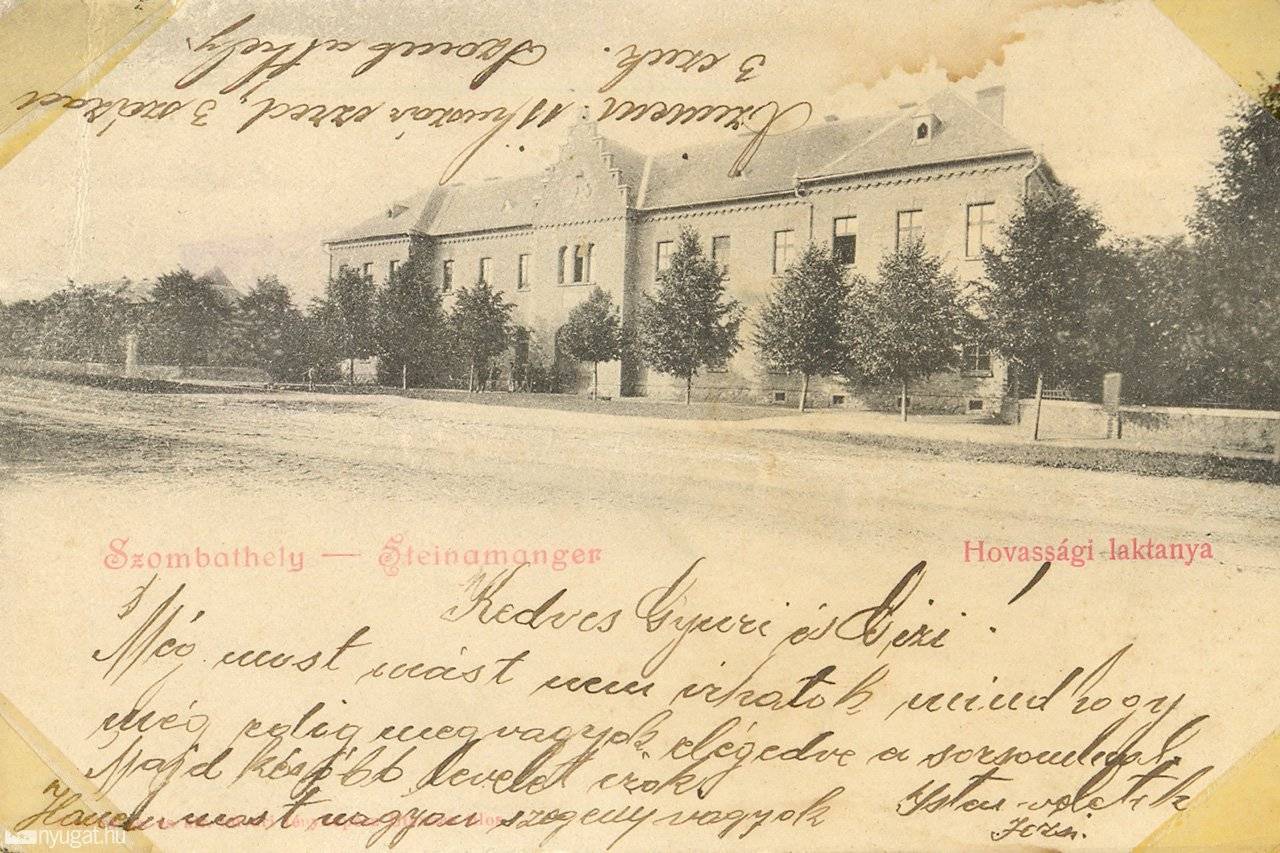 Címem 11 huszár ezred, 3 század
3 szak. Szombathely.
Szombathely — Steinamanger
Hovassági laktanya
Kedves Gyuri és Gizi!
Még most mást nem irhatok mindhogy
még edig megvagyok elégedve a sorsommal.
Majd később levelet irok.
Hanem most nagyon szegény vagyok Isten veletek
Józsi.
nyugat.hu